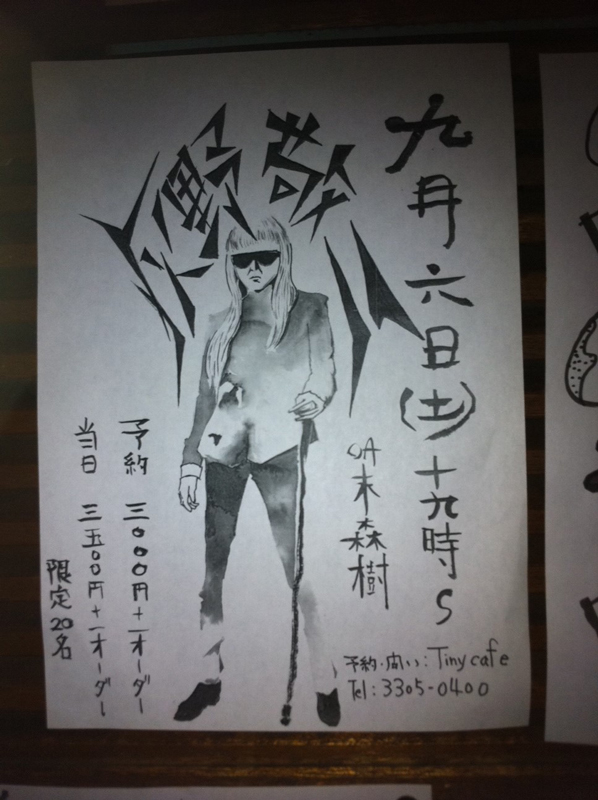 灰野敬二
九月六日(土)十九時〜
OA 末森樹
予約 三〇〇〇円+一オーダー
当日 三五〇〇円+一オーダー
限定20名
予約・問い:Tiny cafe
Tel:3305-0400